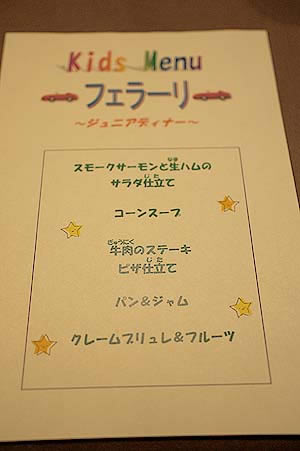 Kids Menu
フェラーリ
～ジュニアディナー～
スモークサーモンと生ハムの
サラダ仕立て
コーンスープ
牛肉のステーキ
ピザ仕立て
パン＆ジャム
クレームブリュレ＆フルーツ